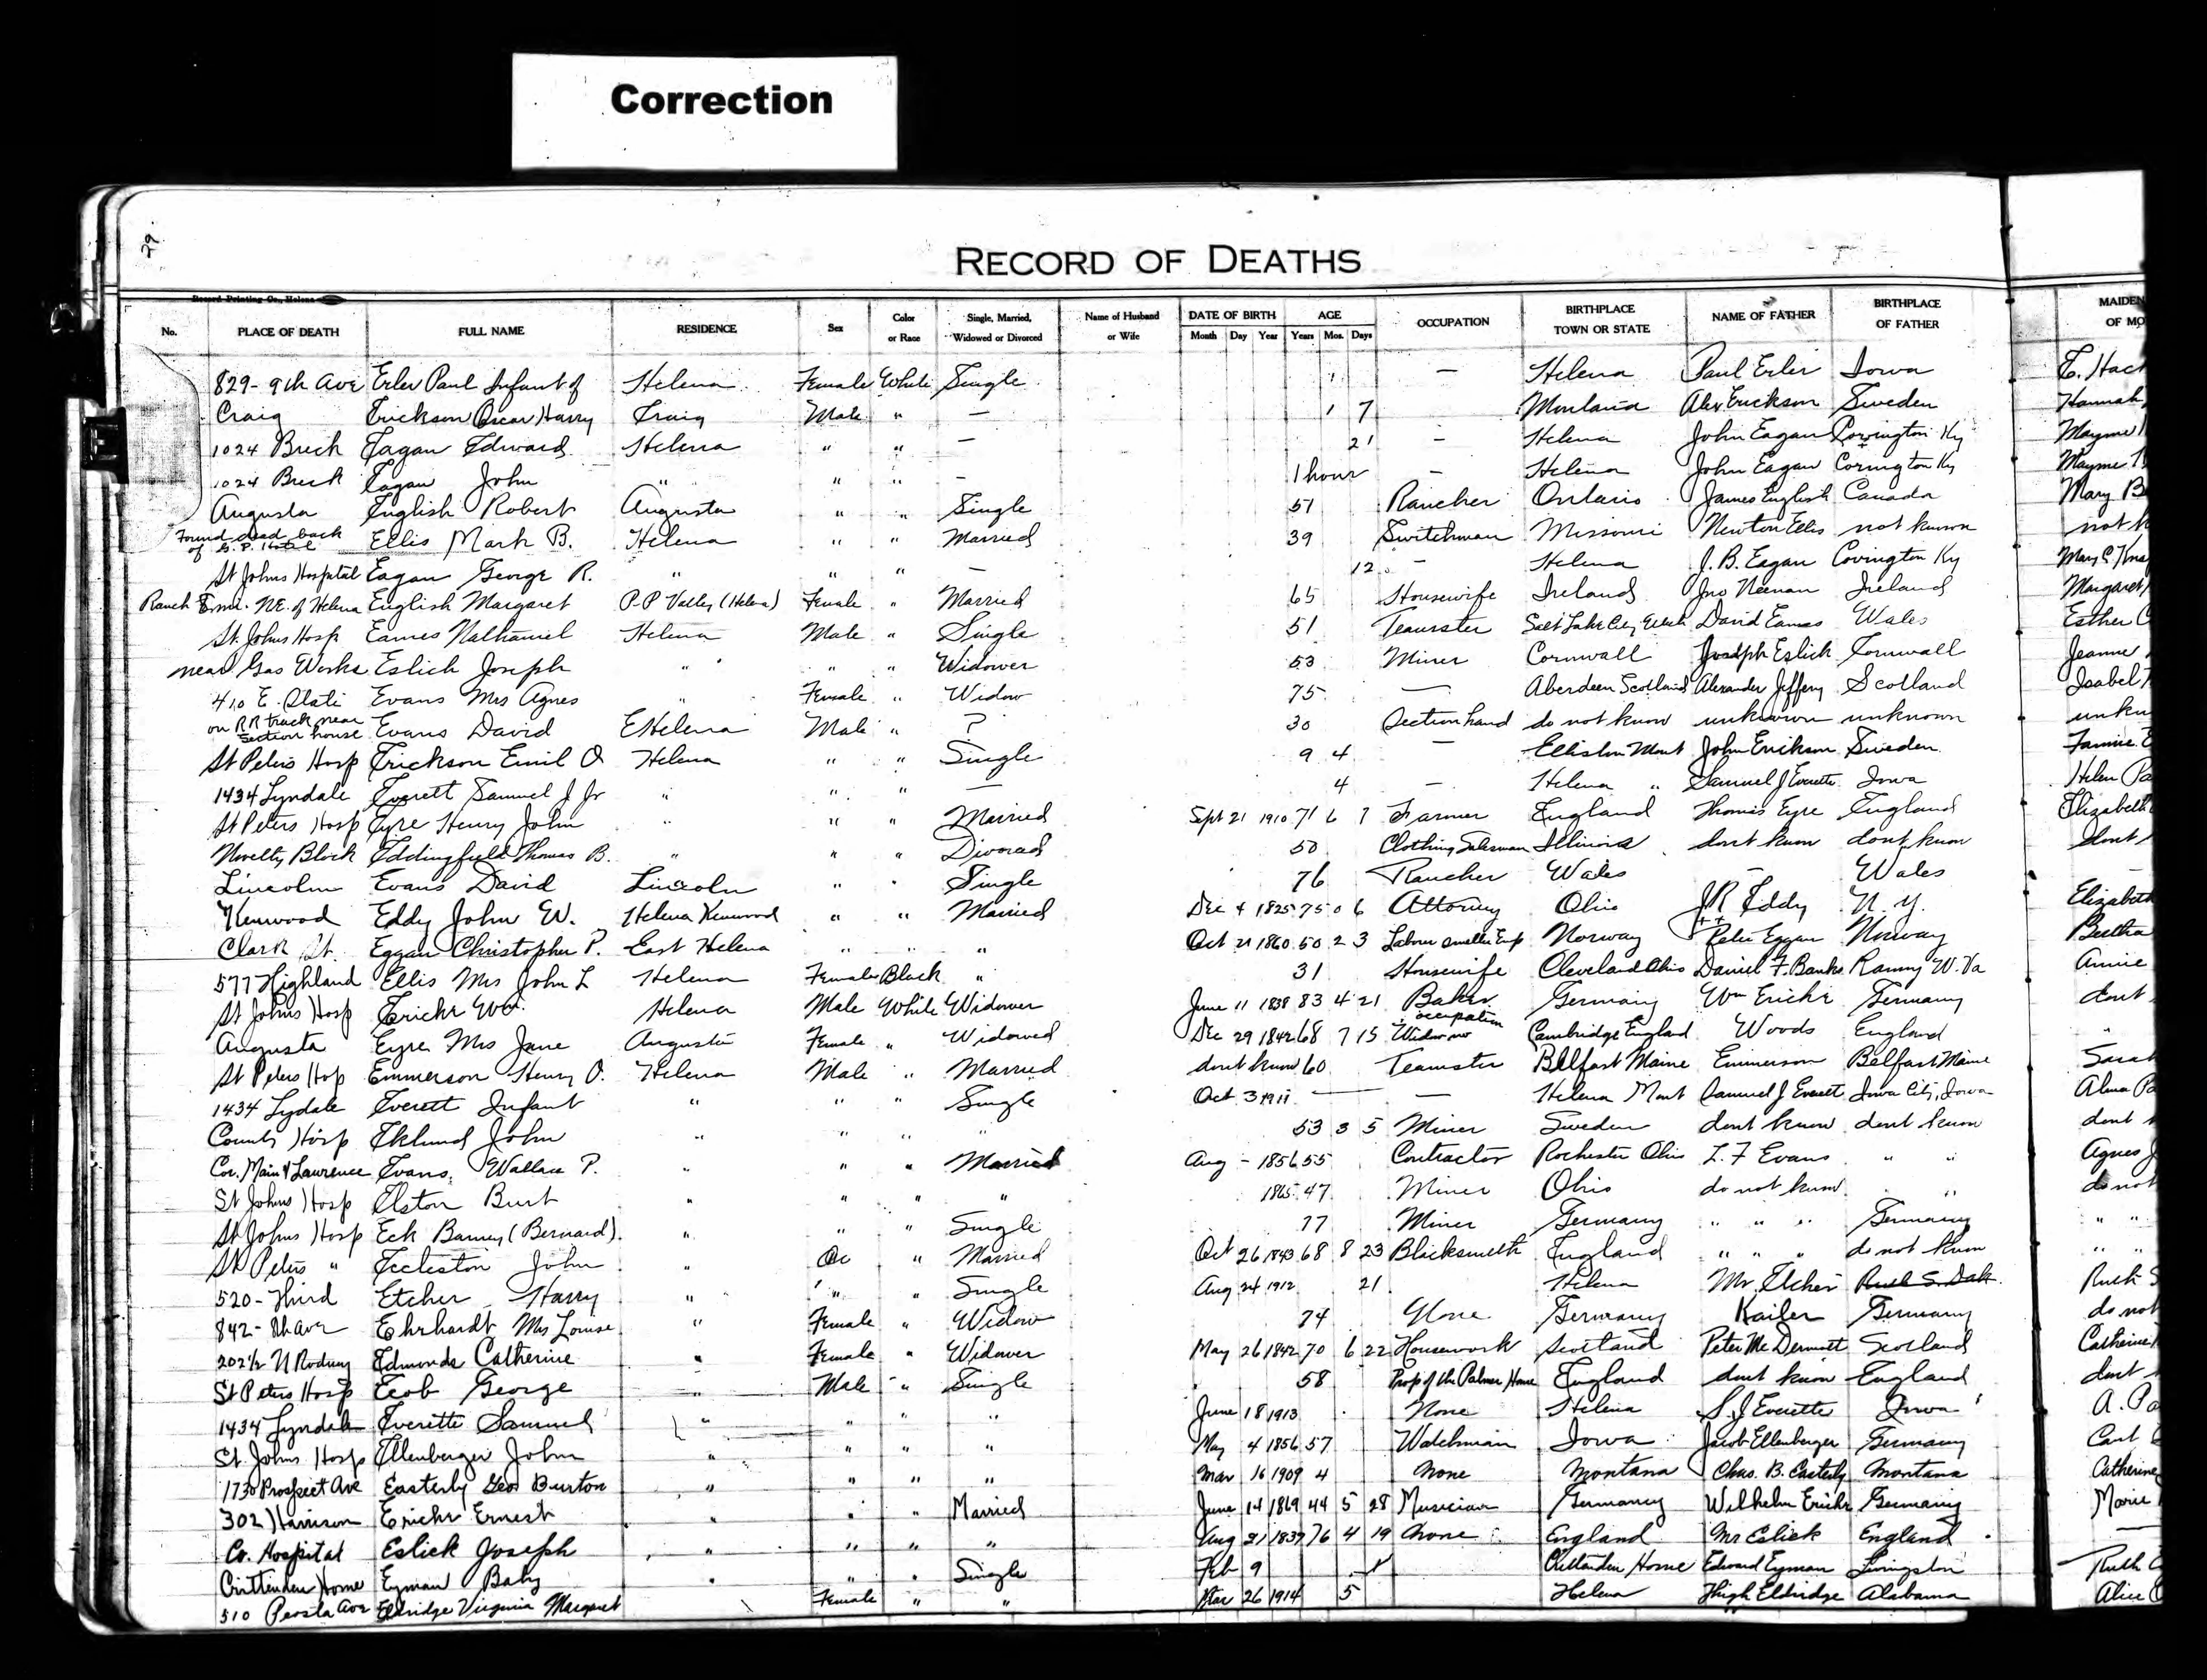 Correction
29
RECORD OF DEATHS
Record Printing Co., Helena
No. PLACE OF DEATH FULL NAME RESIDENCE Sex Color or Race Single, Married, Widowed or Divorced Name of Husband or Wife DATE OF BIRTH Month Day Year AGE Years Mos. Days OCCUPATION BIRTHPLACE TOWN OR STATE NAME OF FATHER BIRTHPLACE OF FATHER MAIDEN OF MO
829 - 9th Ave Erler Paul Infant of Helena Female White Single 1 — Helena Paul Erler Iowa E. Hach
Craig Erickson Oscar Harry Craig Male " — 1 7 Montana Alex Erickson Sweden Hannah
1024 Breck Eagan Edward Helena " " — 21 — Helena John Eagan Covington Ky Mayme
1024 Breck Eagan John " " " — 1 hour — Helena John Eagan Covington Ky Mayme
Augusta English Robert Augusta " " Single 57 Rancher Ontario James English Canada Mary B
Found dead back of G. P. Hotel Ellis Mark B. Helena " " Married 39 Switchman Missouri Newton Ellis not known not k
St Johns Hospital Eagan George R. " " " — 12 — Helena J. B. Eagan Covington Ky Mary C
Ranch 5 mi. N.E. of Helena English Margaret P.P Valley (Helena) Female " Married 65 Housewife Ireland Jno Neenan Ireland Margaret
St. Johns Hosp Eames Nathaniel Helena Male " Single 51 Teamster Salt Lake City Utah David Eames Wales Esther C
near Gas Works Eslick Joseph " " " Widower 53 Miner Cornwall Joseph Eslick Cornwall Jeanne
410 E. State Evans Mrs Agnes " Female " Widow 75 — Aberdeen Scotland Alexander Jeffery Scotland Isabel
on RR track near section house Evans David E Helena Male " ? 30 Section hand do not know unknown unknown unkn
St Peters Hosp Erickson Emil O Helena " " Single 9 4 — Elliston Mont John Erikson Sweden Fannie E
1434 Lyndale Everett Samuel J Jr " " " — 4 — Helena " Samuel J Everette Iowa Helen Pa
St Peters Hosp Eyre Henry John " " " Married Sept 21 1910 71 6 7 Farmer England Thomas Eyre England Elizabeth
Novelty Block Eddingfield Thomas B. " " " Divorced 50 Clothing Salesman Illinois dont know dont know dont
Lincoln Evans David Lincoln " " Single 76 Rancher Wales — Wales
Kenwood Eddy John W. Helena Kenwood " " Married Dec 4 1825 75 0 6 Attorney Ohio J R Eddy N. Y. Elizabeth
Clark St. Eggan Christopher P. East Helena " " " Oct 21 1860 50 2 3 Labor smelter Emp Norway Peter Eggan Norway Bertha
577 Highland Ellis Mrs John L Helena Female Black " 31 Housewife Cleveland Ohio Daniel F. Banks W. Va Annie
St Johns Hosp Erickr Wm. Helena Male White Widower June 11 1838 83 4 21 Baker Germany Wm Erickr Germany dont
Augusta Eyre Mrs Jane Augusta Female " Widowed Dec 29 1842 68 7 15 occupation Widow Cambridge England Woods England "
St Peters Hosp Emmerson Henry O. Helena Male " Married dont know 60 Teamster Bellfast Maine Emmerson Belfast Maine Sarah
1434 Lydale Everett Infant " " " Single Oct 3 1911 — — Helena Mont Samuel J Everett Iowa City, Iowa Alma Pa
County Hosp Eklund John " " " " 53 3 5 Miner Sweden dont know dont know dont
Cor. Main & Lawrence Evans, Wallace P. " " " Married Aug - 1856 55 Contractor Rochester Ohio L. F Evans " " Agnes J
St Johns Hosp Elston Burt " " " " 1865 47 Miner Ohio do not know " do not
St Johns Hosp Eck Barney (Bernard). " " " Single 77 Miner Germany " " " Germany " "
St Peters " Eccleston John " Do " Married Oct 26 1843 68 8 23 Blacksmith England " " " do not know " "
520 - Third Etcher Harry " " " Single Aug 24 1912 21 Helena Mr. Etcher S. Dak Ruth S
842 - 8th Ave Ehrhardt Mrs Louise " Female " Widow 74 None Germany Kailer Germany do not
202 1/2 N Rodney Edmonds Catherine " Female " Widower May 26 1842 70 6 22 Housework Scotland Peter McDermott Scotland Catherine
St Peters Hosp Ecob George " Male " Single 58 Prop of the Palmer House England dont know England dont
1434 Lyndale Everette Samuel " " " " June 18 1913 None Helena S. J Everette Iowa A. Pa
St. Johns Hosp Ellenberger John " " " " May 4 1856 57 Watchman Iowa Jacob Ellenberger Germany Cart
1730 Prospect Ave Easterly Geo Burton " " " " Mar 16 1909 4 None Montana Chas. B. Easterly Montana Catherine
302 Harrison Erickr Ernest " " " Married June 14 1869 44 5 28 Musician Germany Wilhelm Erickr Germany Marie
Co. Hospital Eslick Joseph " " " " Aug 21 1837 76 4 19 None England Mr Eslick England —
Crittenden Home Eyman Baby " " " Single Feb 9 Crittenden Home Edward Eyman Livingston Ruth
510 Peosta Ave Eldridge Virginia Margaret Female " " Mar 26 1914 5 Helena Hugh Eldridge Alabama Alice